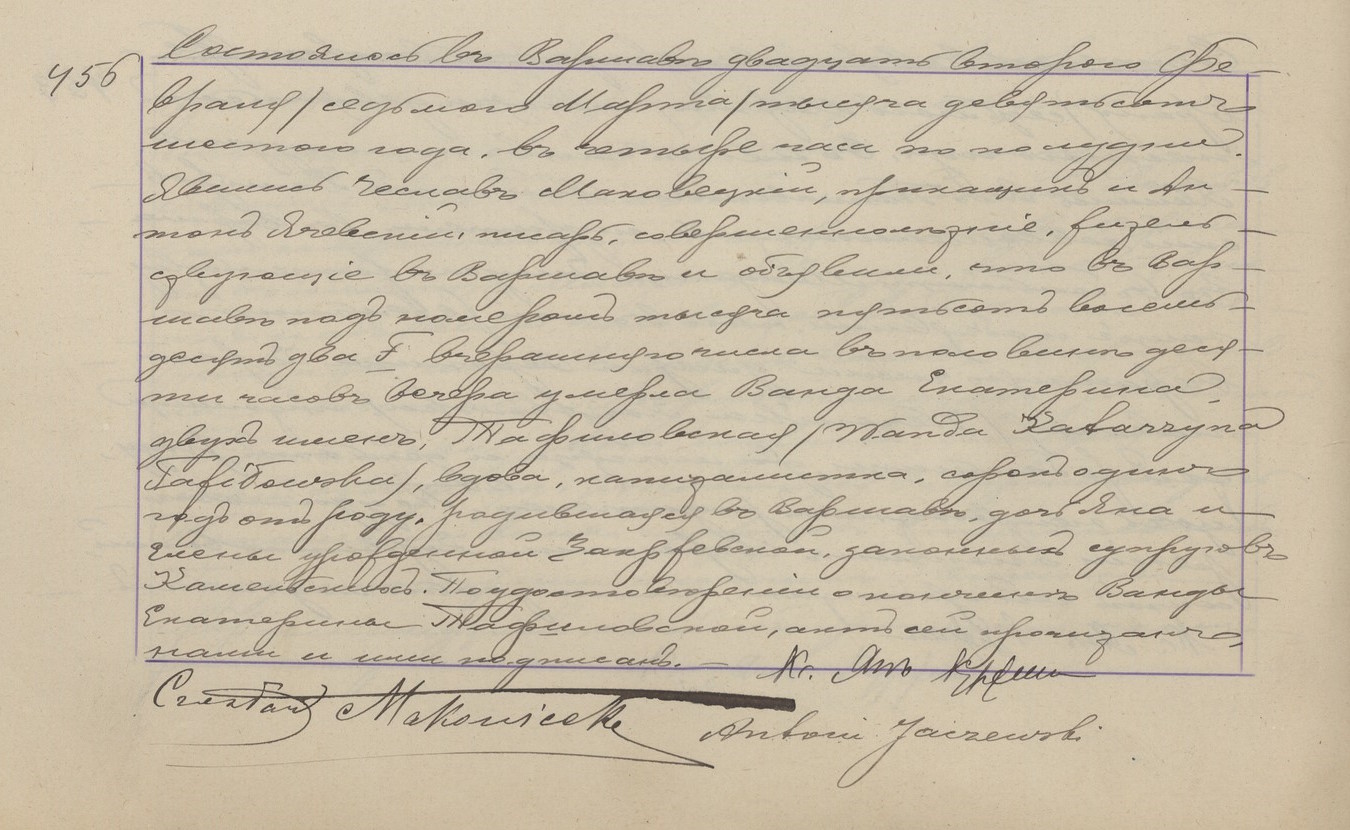 456
Состоялось въ Варшавѣ двадцать второго Фе-
враля /седьмого Марта/ тысяча девятьсотъ
шестого года, въ четыре часа по полудни.
Явились Чеславъ Маковецкій, прикащикъ и Ан-
тонъ Ячевскій, писарь, совершеннолѣтніе, житель-
ствующіе въ Варшавѣ и объявили, что въ Вар-
шавѣ подъ номеромъ тысяча пятьсотъ восемь-
десятъ два F вчерашняго числа въ половинѣ деся-
ти часовъ вечера умерла Ванда Екатерина,
двухъ именъ, Тафиловская /Wanda Katarzyna
Tafiłowska/, вдова, капиталистка, сорокъ одинъ
годъ отъ роду, родившаяся въ Варшавѣ, дочь Яна и
Елены урожденной Закржевской, законныхъ супруговъ
Камельскихъ. По удостовѣреніи о кончинѣ Ванды
Екатерины Тафиловской, актъ сей прочитанъ,
нами и ими подписанъ. —
Кс. Янъ
Czesław Makowiecki
Antoni Jaczewski